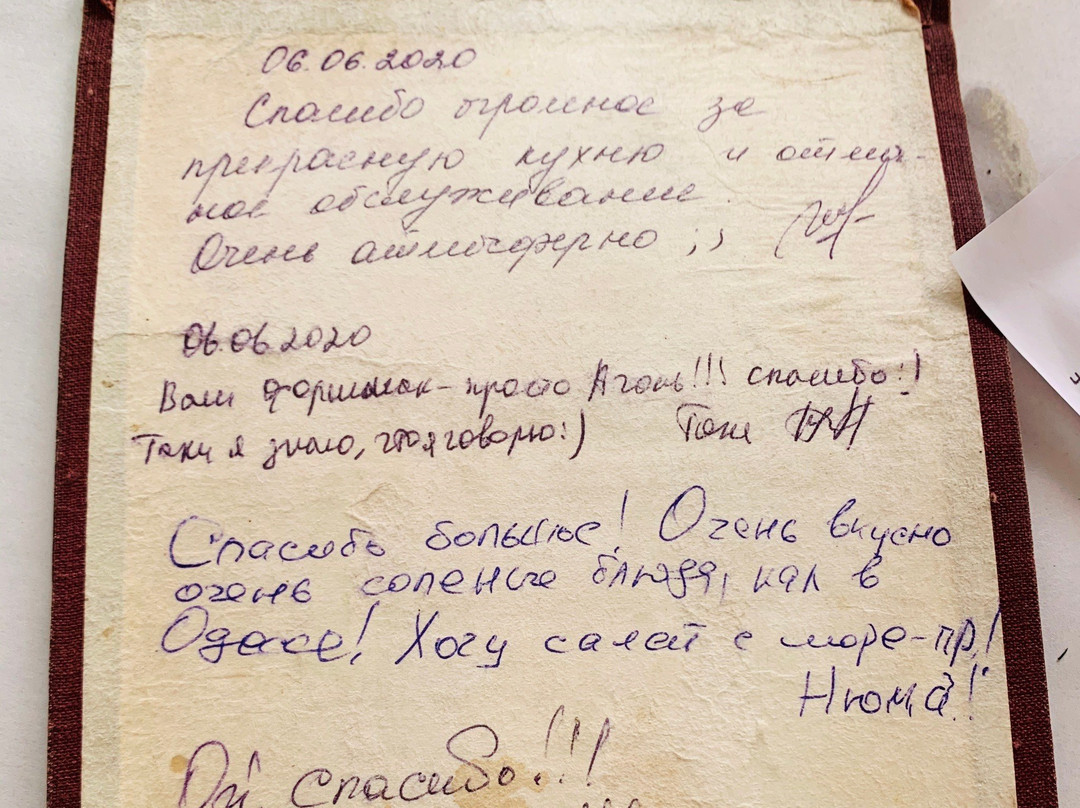 06.06.2020
Спасибо огромное за
прекрасную кухню и отлич-
ное обслуживание.
Очень атмосферно ;)
06.06.2020
Ваш форшмак - просто Агонь!!! спасибо:)
Таки я знаю, что я говорю:) Тоже
Спасибо большое! Очень вкусно
очень соленые блюда, как в
Одессе! Хочу салат с море-пр.!
Нюма!
Ой спасибо!!!